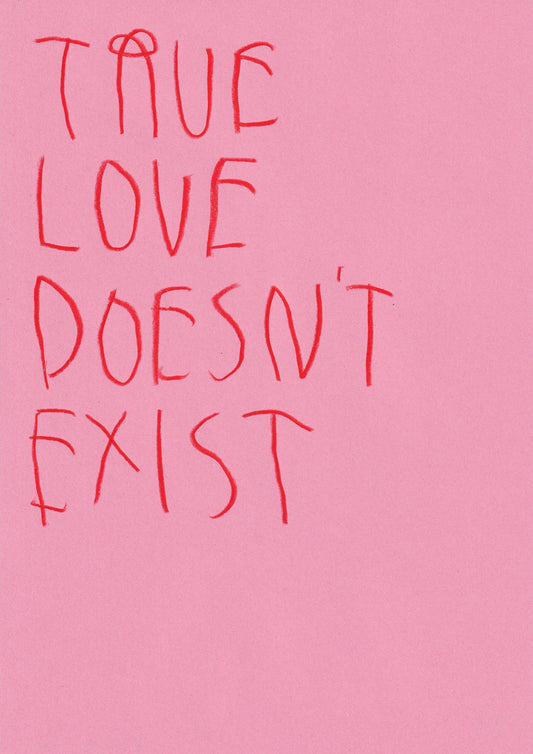 TRUE
LOVE
DOESN'T
EXIST